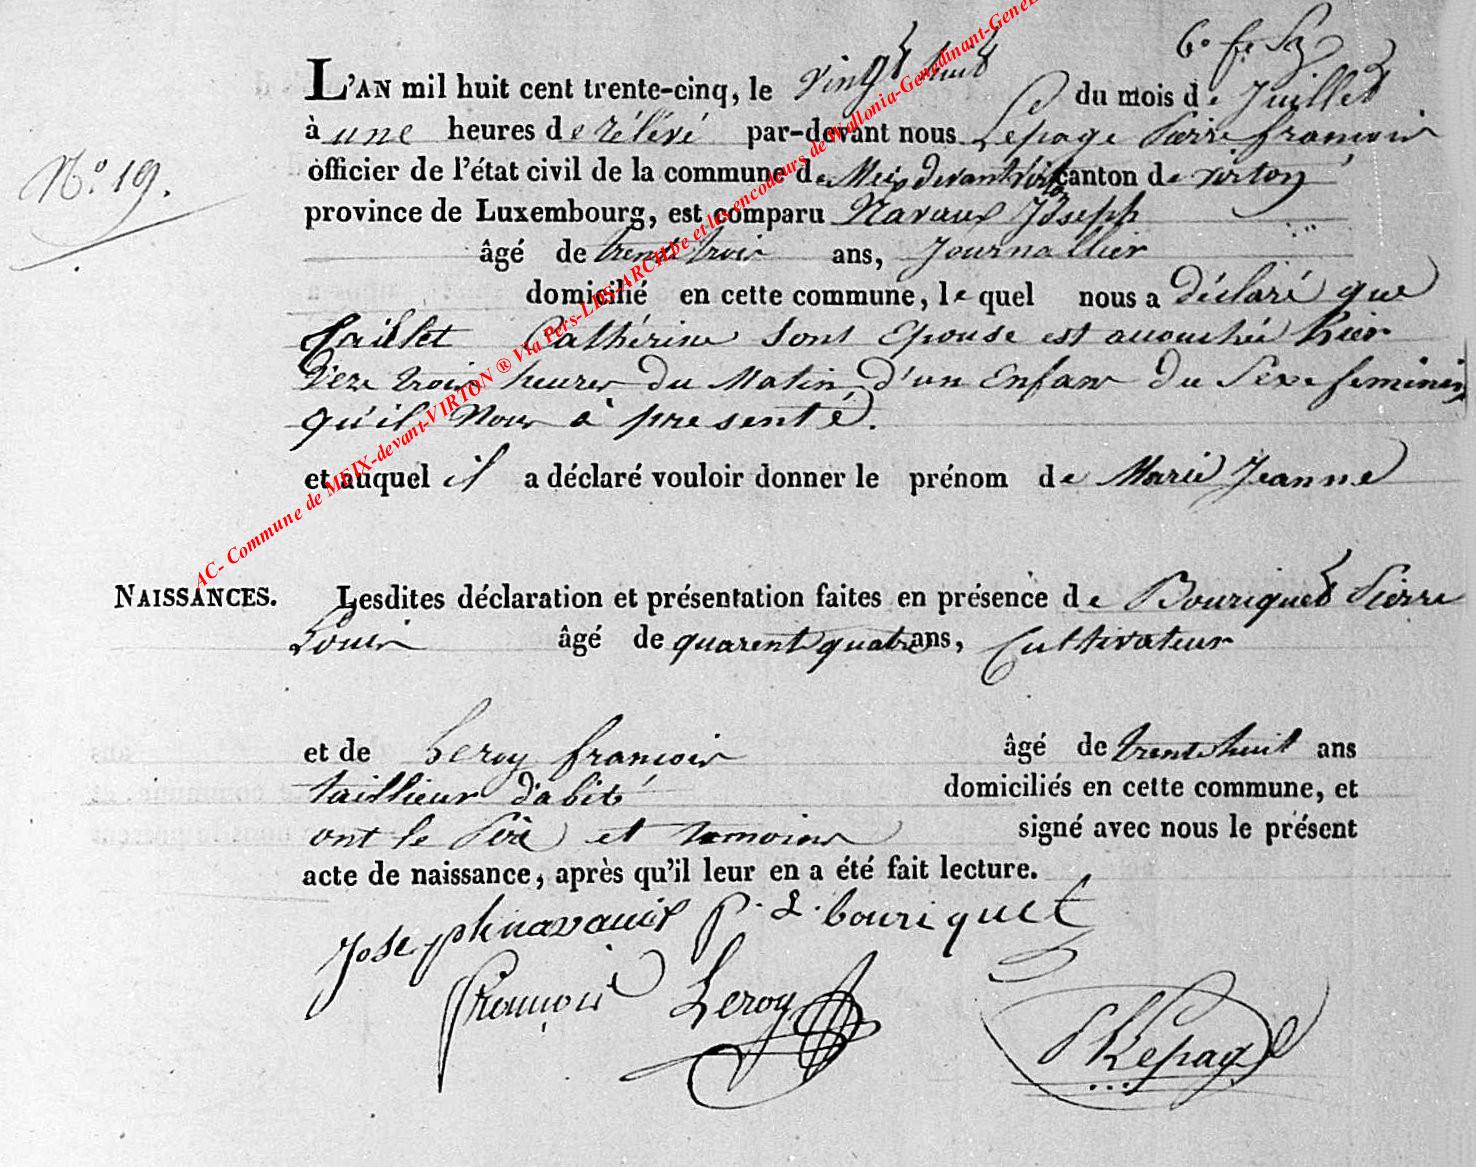 6e fe Sz
L'AN mil huit cent trente-cinq, le vingt huit du mois de Juillet
à une heures de rélévé par-devant nous Lepage Pierre françois
N.o 19.
officier de l'état civil de la commune de Meix devant virton canton de virton
province de Luxembourg, est comparu Navaux Joseph
âgé de trente trois ans, Journallier
domicilié en cette commune, le quel nous a déclaré que
Catherine Sont Epouse est accouchée hier
Vere trois heures du Matin d'un Enfant du Sexe feminin
qu'il Nous à presenté.
et auquel il a déclaré vouloir donner le prénom de Marie Jeanne
NAISSANCES. Lesdites déclaration et présentation faites en présence de Bouriquet Pierre
Louis âgé de quarent quatre ans, Cultivateur
et de Leroy françois âgé de trente huit ans
taillieur d'abit domiciliés en cette commune, et
ont le Père et temoins signé avec nous le présent
acte de naissance, après qu'il leur en a été fait lecture.
Joseph navaux P. L. bouriquet
François Leroy P Lepage
AC- Commune de MEIX-devant-VIRTON ® Via Pers-LDS-ARCH.be et les encodeurs de Wallonia-Genedinant-GeneE